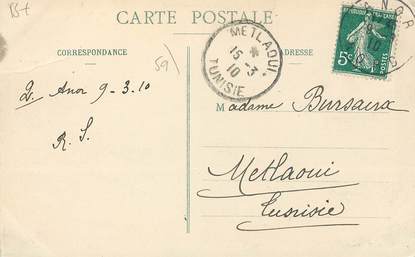 CARTE POSTALE
CORRESPONDANCE
ADRESSE
59
METLAOUI
15-3
10
TUNISIE
5c
POSTES
Anor 9-3.10
R. S.
Madame Bursaux
Metlaoui
Tunisie